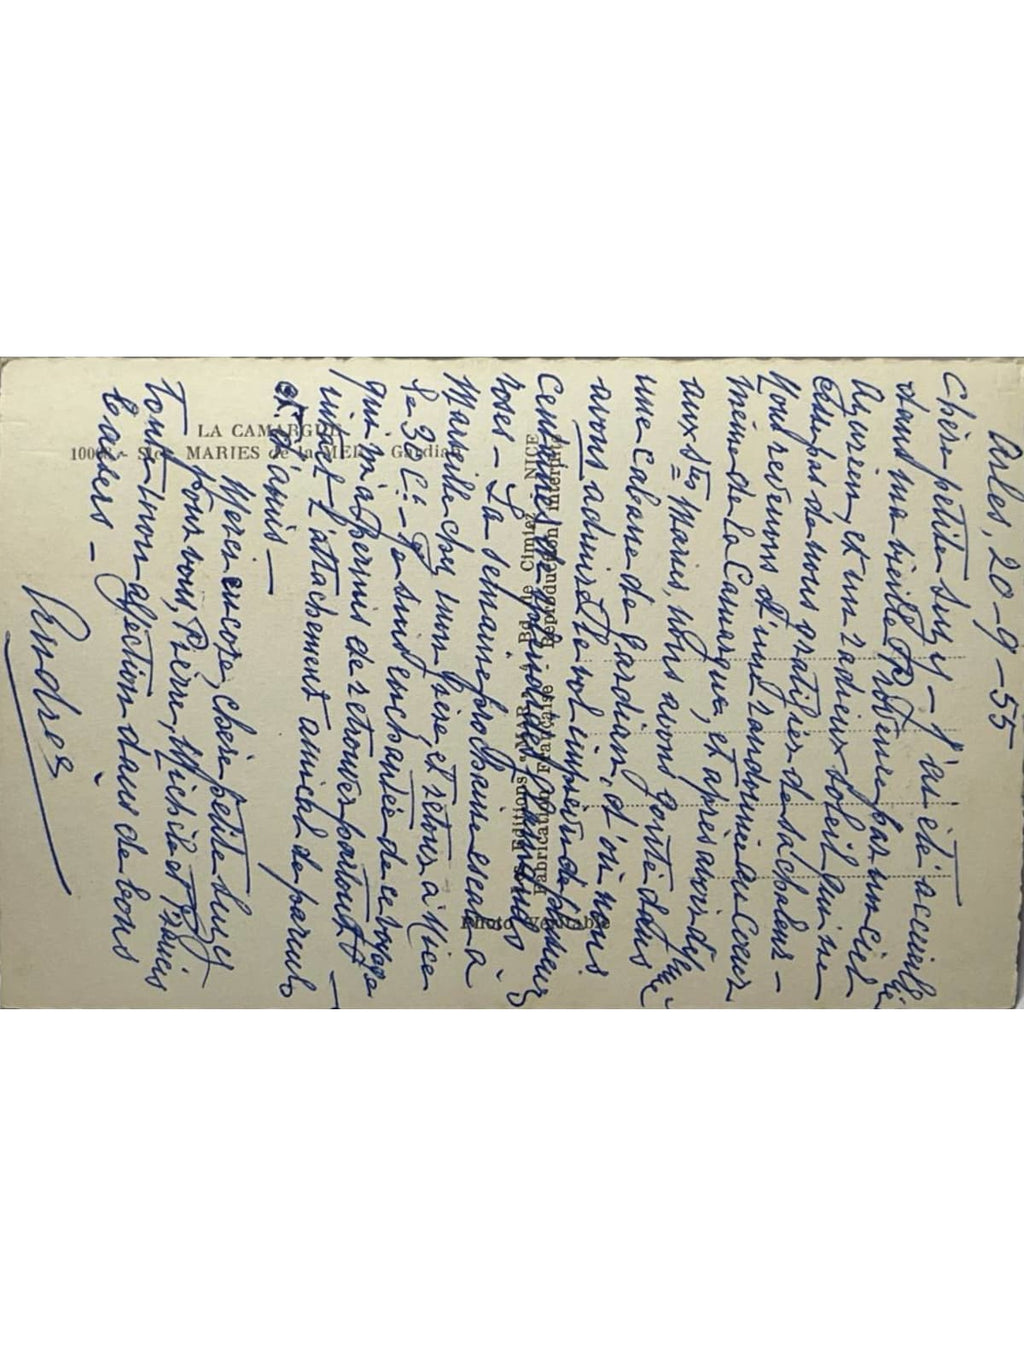 Arles, 20-9-55
Chère petite Suzy - J'ai été accueillie
dans ma vieille Provence par un ciel
azuréen, et un radieux soleil qui ne
cesse pas de nous gratifier de sa chaleur -
Nous revenons d'une randonnée au Coeur
même de la Camargue, et après avoir dîné
aux Stes Maries, nous avons goûté dans
une Cabane de Gardians, d'où nous
avons admiré le vol imprévu de plusieurs
Centaines de splendides flamands
roses - La semaine prochaine sera à
Marseille chez mon frère, et retour à Nice
le 30 Ct. - Je suis enchantée de ce voyage
qui m'a permis de retrouver partout
intact l'attachement amical de parents
et d'amis -
Merci encore, chère petite Suzy
pour vous, Pierre, Michèle et
toute mon affection dans de bons
baisers -
Andrée
LA CAMARGUE
MARIES de la MER - Gardian
Editions "MAR" - Bd. de Cimiez - NICE
Fabrication Française - Reproduction interdite
Photo Véritable